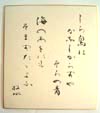 しら鳥は
かなしからずや
そらの青
海のあをにも
そまずたゞよふ
牧水